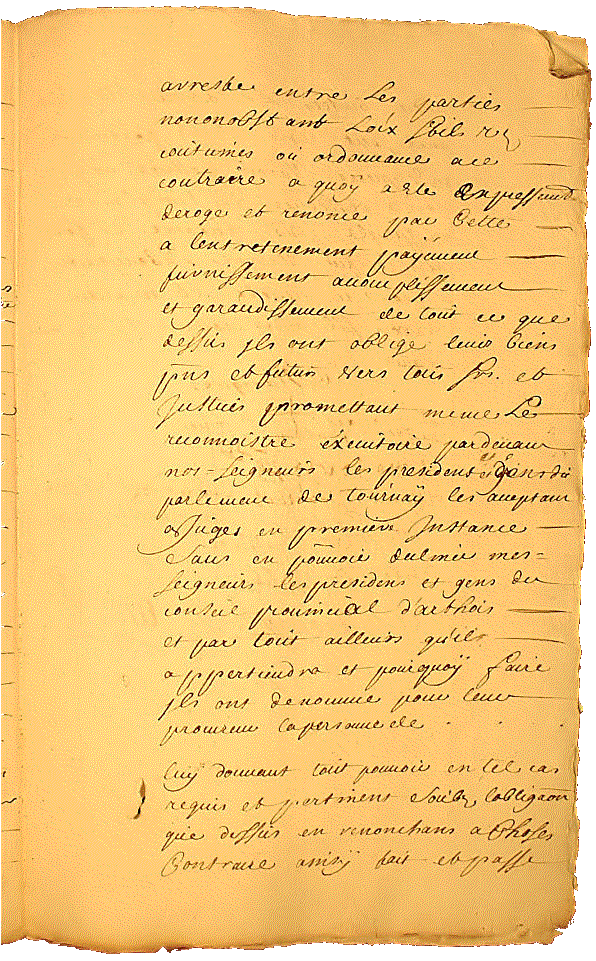 arresté entre les parties
nononobstant Loix stils
coutumes ou ordonnance a ce
contraire a quoÿ a esté expressemt
derogé et renoncé par cette
a lentretenement payement
furnissement acomplissement
et garandissement de tout ce que
dessus jls ont obligé leurs biens
pns et futurs vers tous srs. et
Justices promettant meme Le
reconnoistre éxecutoire pardevant
nos-seigneurs les president et gens du
parlement de tournaÿ les aceptant
a Juges en premiere Jnstance
Sans en pouvoir
seigneurs les presidens et gens du
conseil prouincial d'arthois
et par tout ailleurs qu'ils
appertiendra et pourquoÿ faire
jls ont denommé pour leur
procureur la personne de
luÿ donnant tout pouvoir en tel cas
requis et pertinent soub lobligaon
que dessus en renonchans a choses
Contraire ainsÿ fait et passé